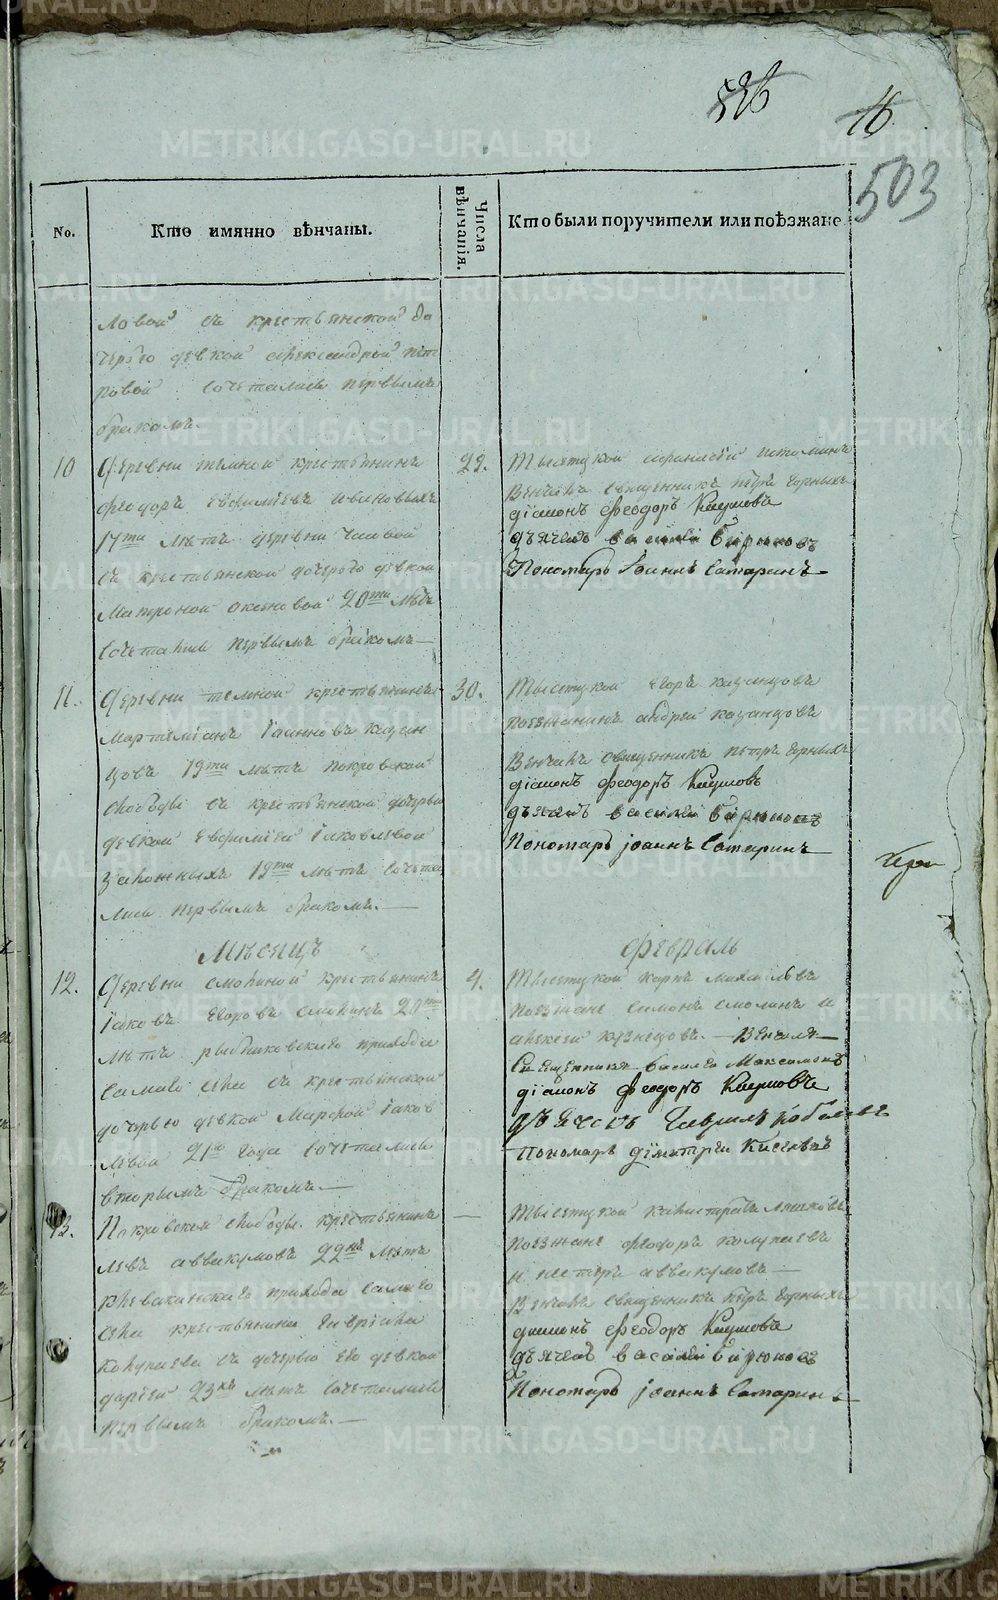 526
16
503
No.
Кто имянно вѣнчаны.
Числа вѣнчанія.
Кто были поручители или поѣзжане
ловой съ крестьянской до
черью девкой Александрой пет
ровой сочетались первымъ
бракомъ.
10 Деревни темной крестьянинъ
Феодоръ Евфимьевъ Ивановыхъ
17ти лѣтъ деревни
съ крестьянской дочерью девкой
Матроной 20ти лѣтъ
сочетались первымъ бракомъ
29.
Тысяцкой
Венчалъ священникъ петръ Черныхъ
діаконъ Феодоръ
дьячекъ василей Бирюковъ
Пономарь Іоаннъ Сатаринъ
11. Деревни темной крестьянинъ
Мартеміанъ Іаинновъ казан
цовъ 19ти лѣтъ покровской
слободы съ крестьянской дочерью
девкой Евфиміей Іаковлевой
19ти лѣтъ сочета
лись первымъ бракомъ.
30.
Тысяцкой Егоръ казанцовъ
поезжанинъ андрей казанцовъ
Венчалъ священникъ петръ Черныхъ
діаконъ Феодоръ
дьячекъ василей Бирюковъ
Пономарь Іоаннъ Сатаринъ
Мѣсяцъ
Февраль
12. Деревни смолиной крестьянинъ
Іаковъ Егоровъ смолинъ
лѣтъ рыбниковскаго прихода
самаго села съ крестьянской
дочерью девкой Марѳой Іаков
левой 21го года сочетались
вторымъ бракомъ.
4.
Тысяцкой карпъ
поезжане симонъ смолинъ и
алексей кузнецовъ. Венчали
Священникъ Василей Максимовъ
діаконъ Феодоръ
дьячекъ Гаврилъ
пономарь димитрей Киселевъ
13. Покровской слободы крестьянинъ
левъ аввакумовъ 22хъ лѣтъ
клевакинскаго прихода самаго
села крестьянина Гавріила
колупаева съ дочерью его девкой
дарьей 23хъ лѣтъ сочетались
первымъ бракомъ.
—
Тысяцкой
поезжане феодоръ колупаевъ
и петръ аввакумовъ
Венчалъ священникъ петръ Черныхъ
діаконъ Феодоръ
дьячекъ василей Бирюковъ
Пономарь Іоаннъ Сатаринъ
METRIKI.GASO-URAL.RU